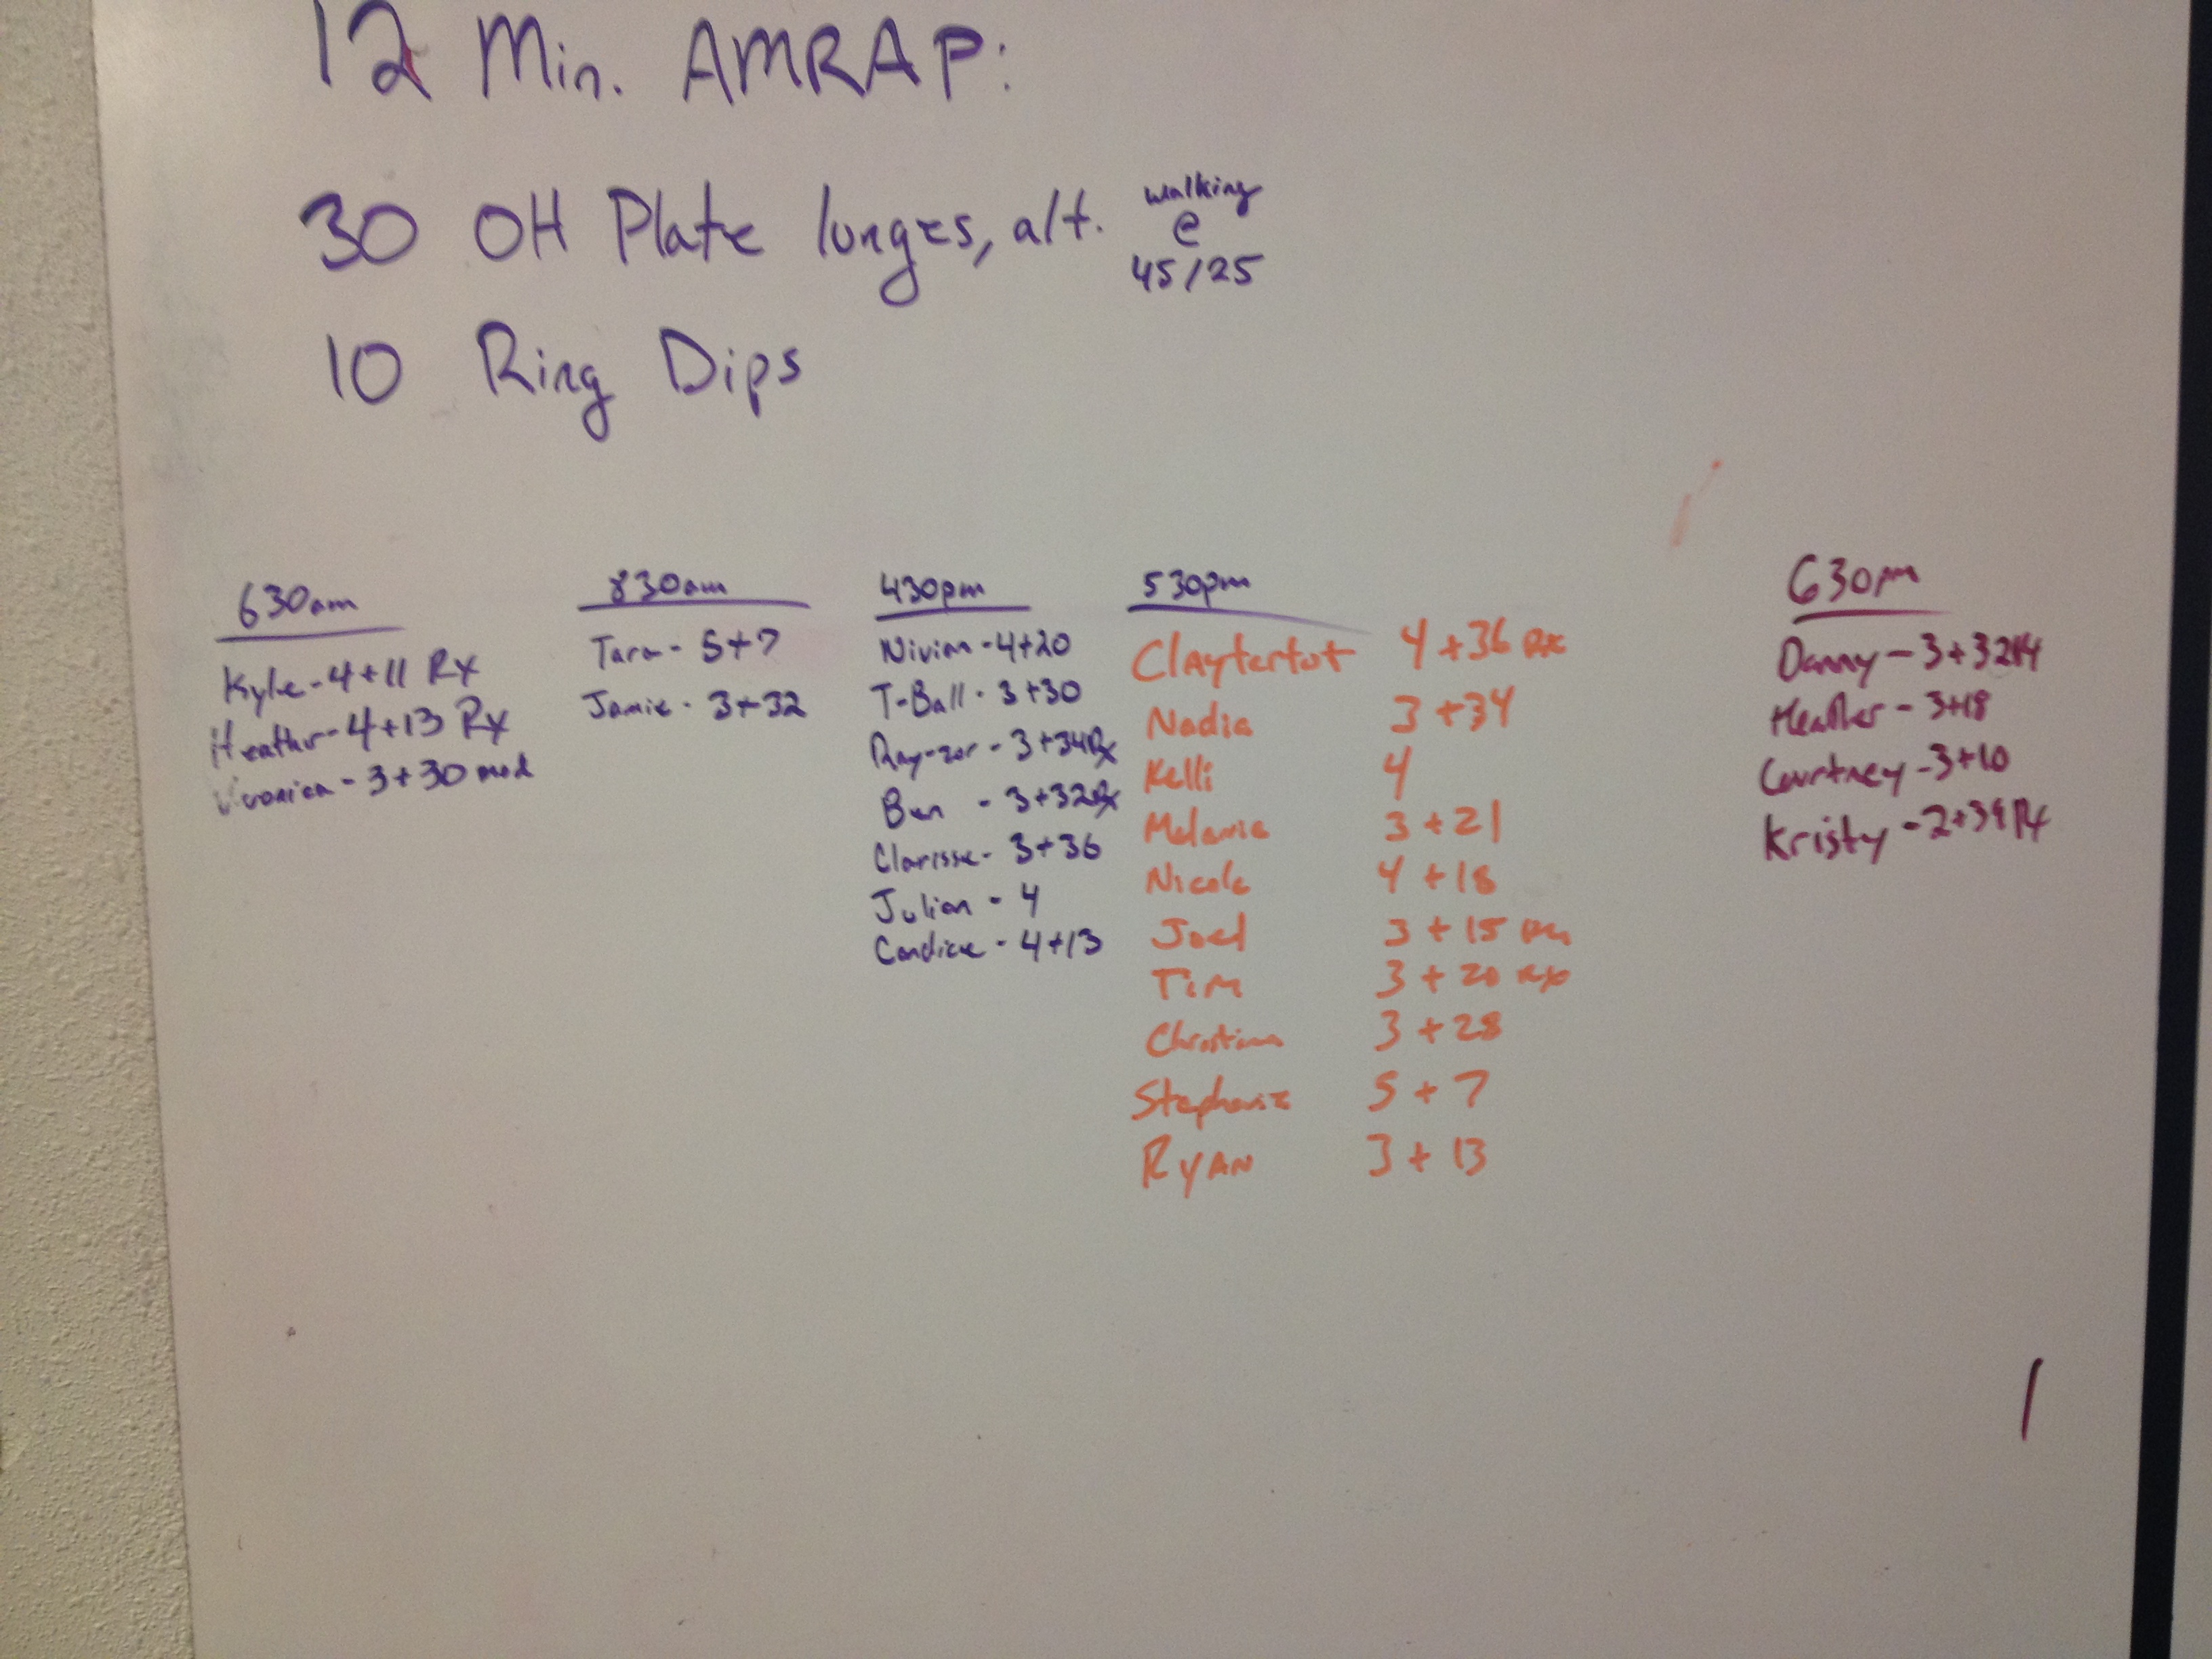 12 Min. AMRAP:
30 OH Plate lunges, alt. walking @ 45/25
10 Ring Dips
630am
Kyle - 4+11 Rx
Heather - 4+13 Rx
Veronica - 3+30 mod
830am
Tara - 5+7
Jamie - 3+32
430pm
Nivian - 4+20
T-Ball - 3+30
Ray-zor - 3+34 Rx
Ben - 3+32 Rx
Clarisse - 3+36
Julian - 4
Candice - 4+13
530pm
Claytertot 4+36 Rx
Nadia 3+34
Kelli 4
Melanie 3+21
Nicole 4+18
Joel 3+15
Tim 3+20 Rx
3+28
Stephanie 5+7
Ryan 3+13
630pm
Danny - 3+32 Rx
Heather - 3+18
Courtney - 3+10
Kristy - 2+39 Rx